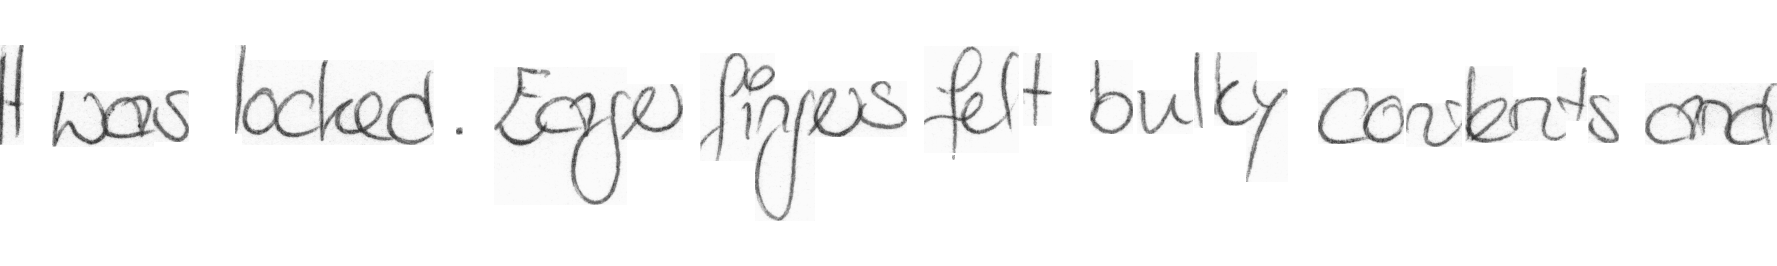 It was locked. Eager fingers felt bulky contents and